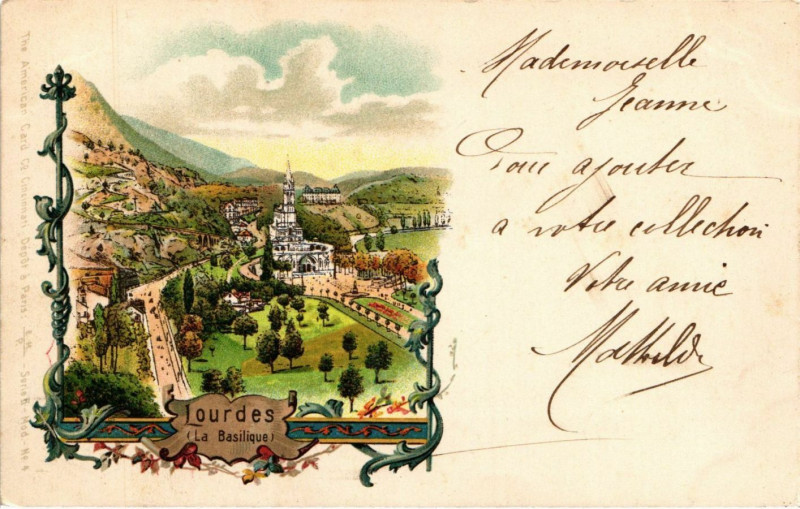 The American Card Co Cincinnati Dépôt à Paris: Série No 4
Lourdes
(La Basilique)
Mademoiselle
Jeanne
Pour ajouter
a votre collection
Votre amie
Mathilde